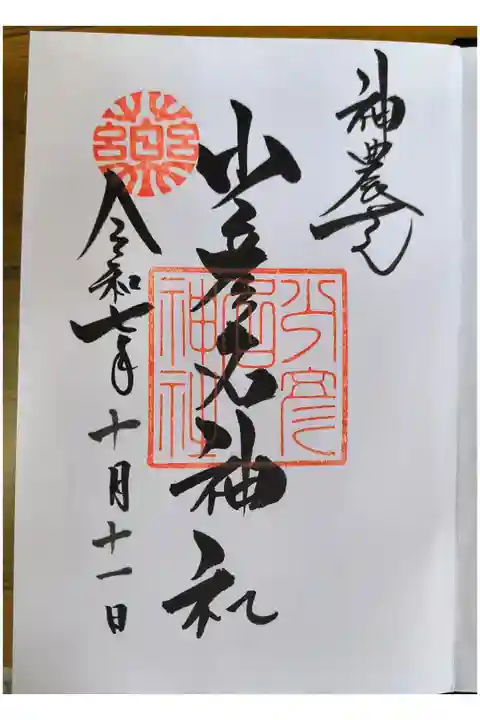 神農さん
少彦名神社
令和七年十月十一日
少彦
名
神社